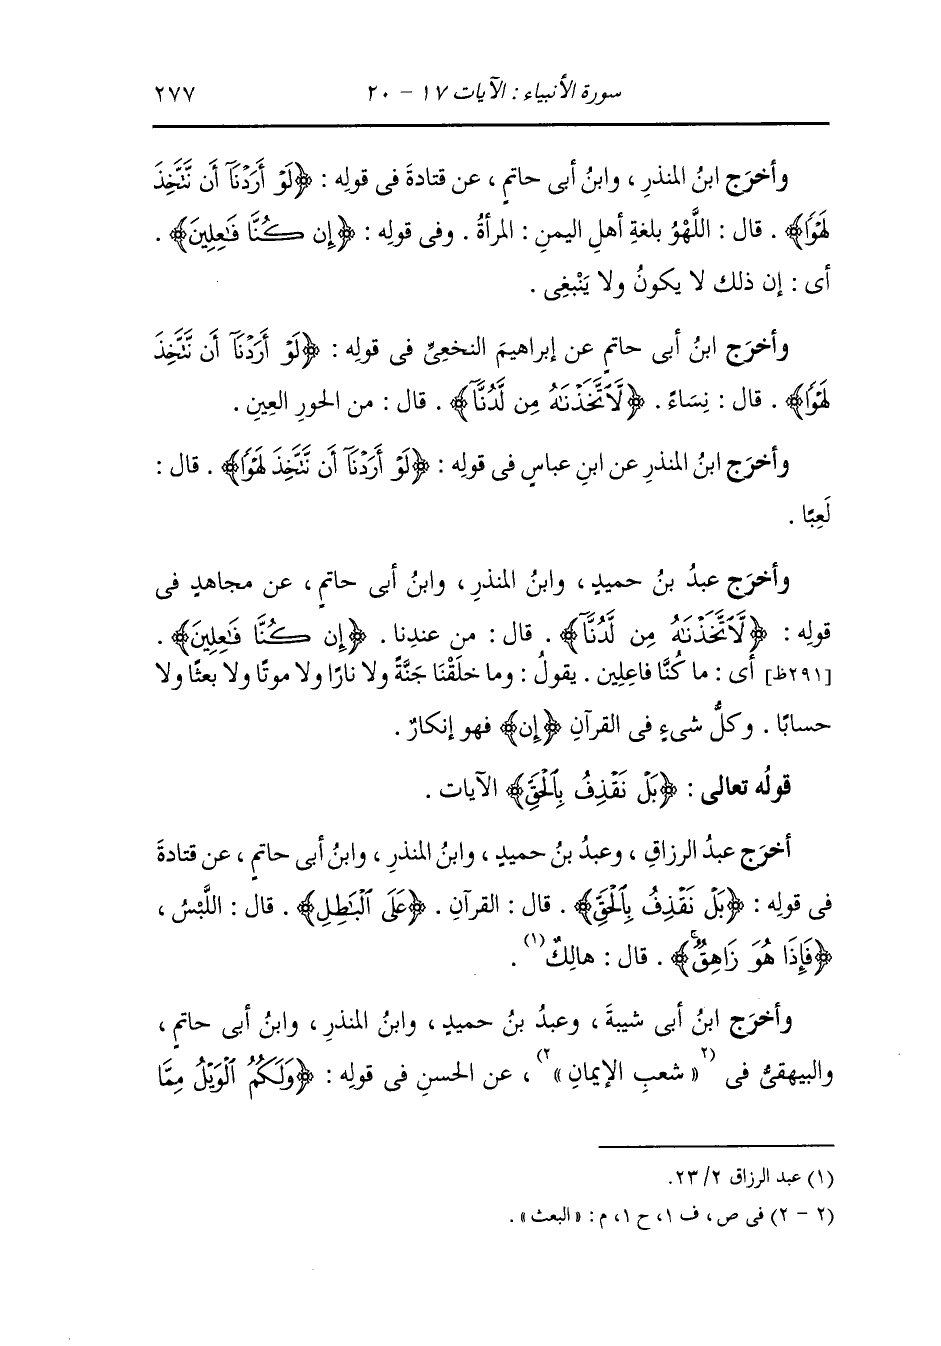 سورة الأنبياء : الآيات ١٧ – ٢٠ ٢٧٧
وأخرَج ابنُ المنذرِ ، وابنُ أبى حاتمٍ ، عن قتادةَ فى قولِه : ﴿لَوْ أَرَدْنَآ أَن نَّتَّخِذَ
لَهْوًا﴾ . قال : اللَّهْوُ بلغةِ أهلِ اليمنِ : المرأةُ . وفى قولِه : ﴿إِن كُنَّا فَٰعِلِينَ﴾ .
أى : إن ذلك لا يكونُ ولا يَنْبغِى .
وأخرَج ابنُ أبى حاتمٍ عن إبراهيمَ النخعىِّ فى قولِه : ﴿لَوْ أَرَدْنَآ أَن نَّتَّخِذَ
لَهْوًا﴾ . قال : نِسَاءً . ﴿لَّٱتَّخَذْنَٰهُ مِن لَّدُنَّآ﴾ . قال : من الحورِ العِينِ .
وأخرَج ابنُ المنذرِ عن ابنِ عباسٍ فى قولِه : ﴿لَوْ أَرَدْنَآ أَن نَّتَّخِذَ لَهْوًا﴾ . قال :
لَعِبًا .
وأخرَج عبدُ بنُ حميدٍ ، وابنُ المنذرِ ، وابنُ أبى حاتمٍ ، عن مجاهدٍ فى
قولِه : ﴿لَّٱتَّخَذْنَٰهُ مِن لَّدُنَّآ﴾ . قال : من عندِنا . ﴿إِن كُنَّا فَٰعِلِينَ﴾ .
[٢٩١ظ] أى : ما كُنَّا فاعِلين . يقولُ : وما خلَقْنَا جَنَّةً ولا نارًا ولا موتًا ولا بعثًا ولا
حسابًا . وكلُّ شىءٍ فى القرآنِ ﴿إِن﴾ فهو إنكارٌ .
قولُه تعالى : ﴿بَلْ نَقْذِفُ بِٱلْحَقِّ﴾ الآيات .
أخرَج عبدُ الرزاقِ ، وعبدُ بنُ حميدٍ ، وابنُ المنذرِ ، وابنُ أبى حاتمٍ ، عن قتادةَ
فى قولِه : ﴿بَلْ نَقْذِفُ بِٱلْحَقِّ﴾ . قال : القرآنِ . ﴿عَلَى ٱلْبَٰطِلِ﴾ . قال : اللَّبْسُ ،
﴿فَإِذَا هُوَ زَاهِقٌۚ﴾ . قال : هالِكٌ(١) .
وأخرَج ابنُ أبى شيبةَ ، وعبدُ بنُ حميدٍ ، وابنُ المنذرِ ، وابنُ أبى حاتمٍ ،
والبيهقىُّ فى (٢« شعبِ الإيمانِ »٢) ، عن الحسنِ فى قولِه : ﴿وَلَكُمُ ٱلْوَيْلُ مِمَّا
(١) عبد الرزاق ٢٣/٢.
(٢ – ٢) فى ص، ف ١، ح ١، م : « البعث » .